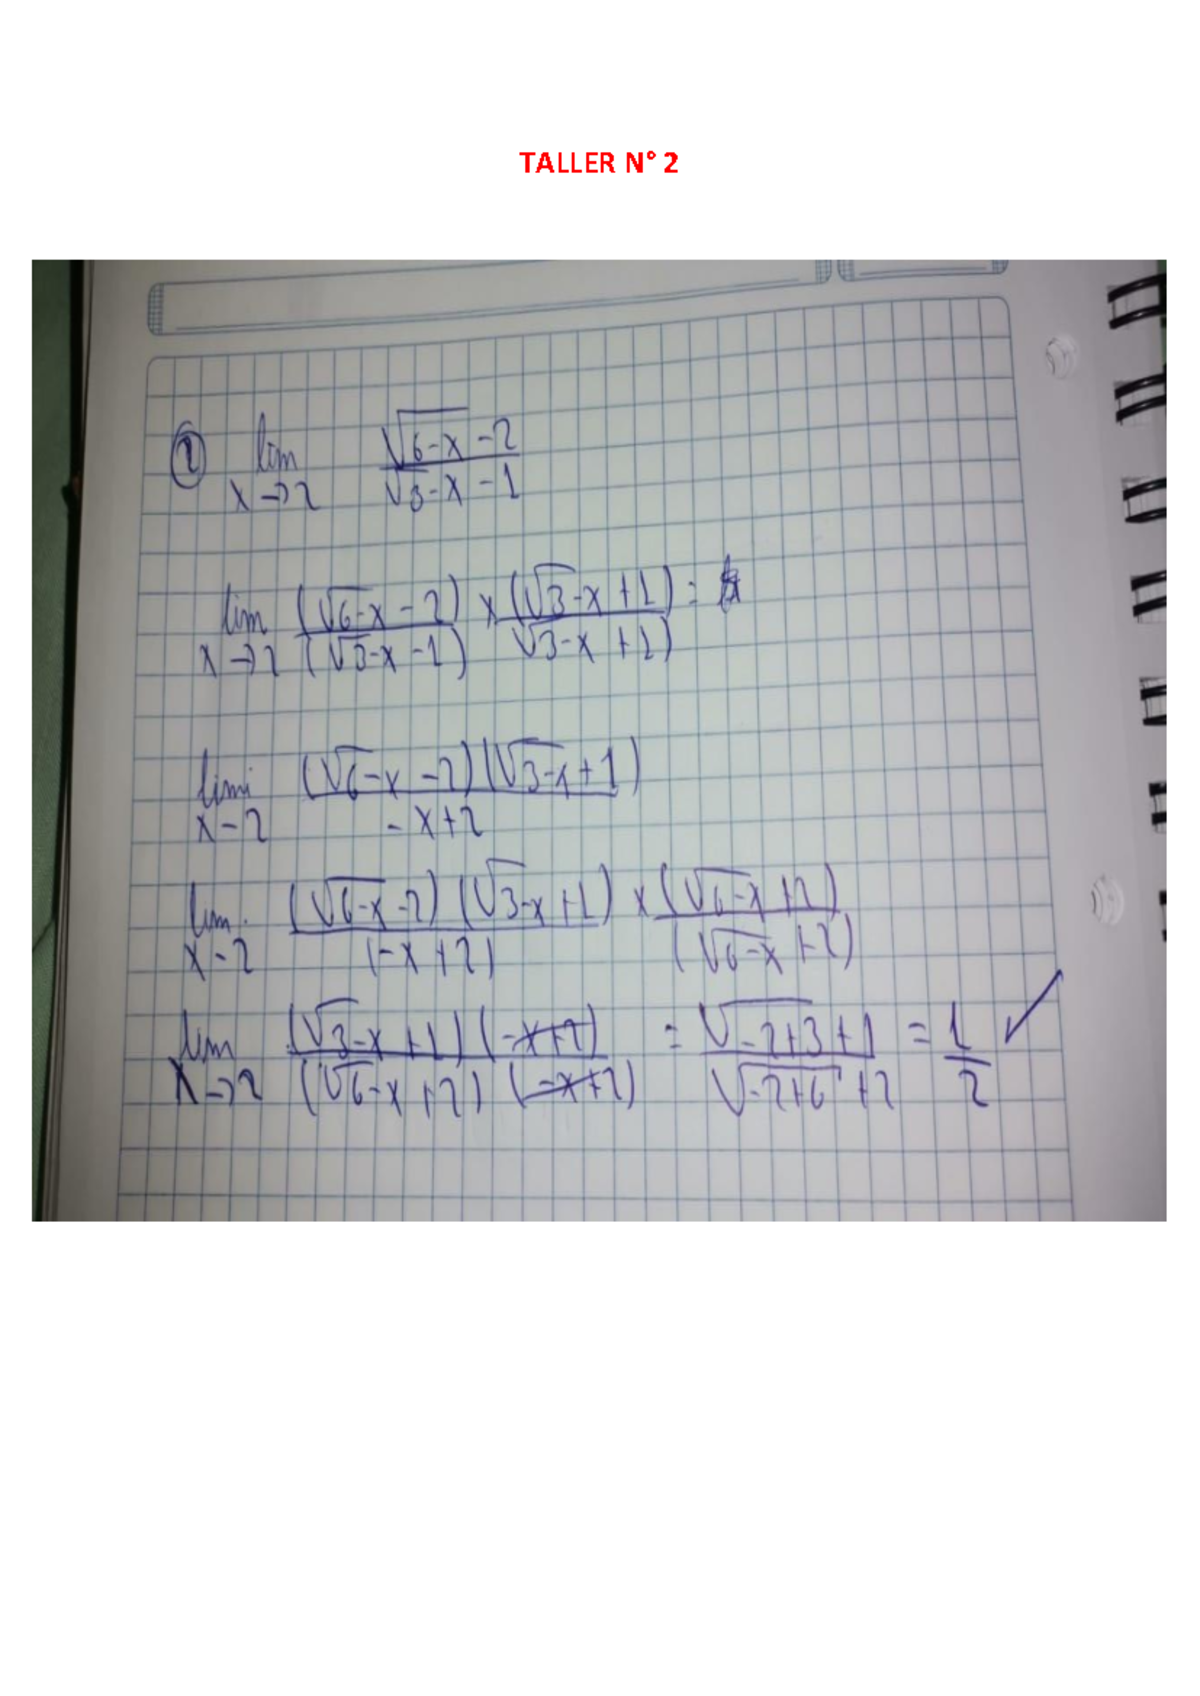 TALLER N° 2
① lim x→2 (√(6-x) - 2)/(√(3-x) - 1)
lim x→2 (√(6-x) - 2)/(√(3-x) - 1) × (√(3-x) + 1)/(√(3-x) + 1) =
limi x-2 (√(6-x) - 2)(√(3-x) + 1)/(-x+2)
lim. x-2 (√(6-x) - 2)(√(3-x) + 1)/(-x+2) × (√(6-x) + 2)/(√(6-x) + 2)
lim x→2 (√(3-x) + 1)(-x+2)/(√(6-x) + 2)(-x+2) = (√(-2+3) + 1)/(√(-2+6) + 2) = 1/2 ✓